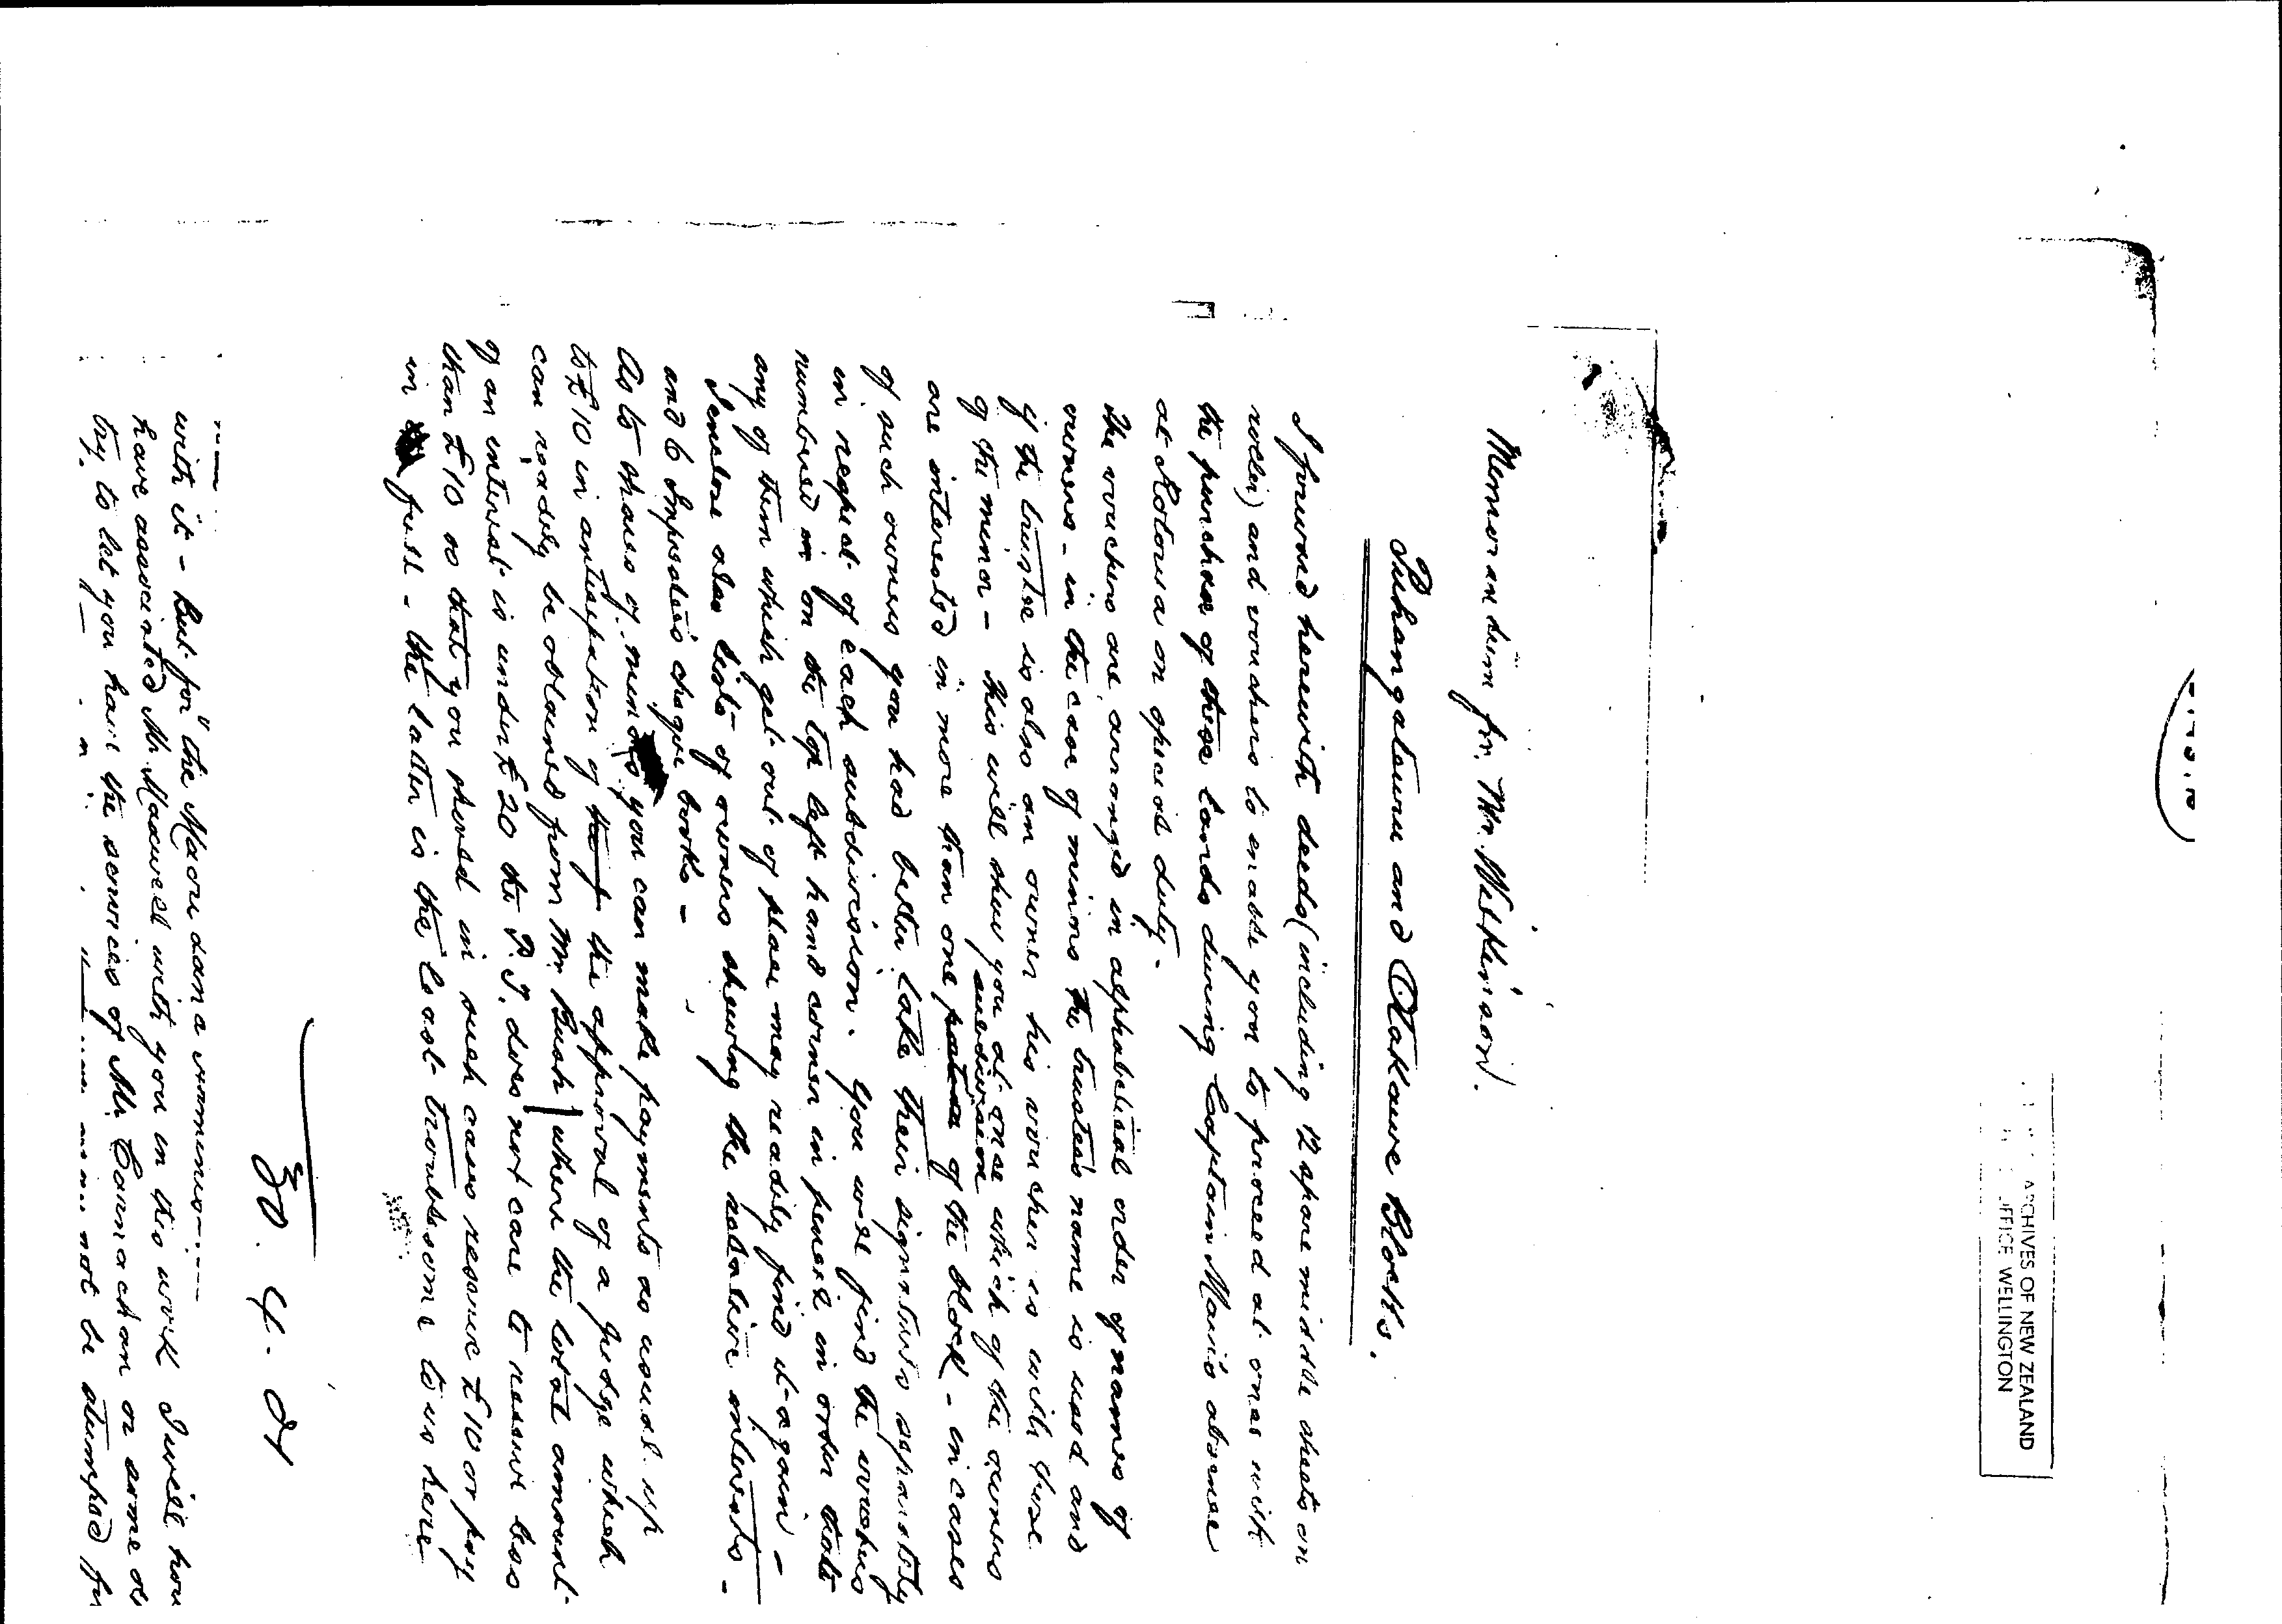 ARCHIVES OF NEW ZEALAND
OFFICE WELLINGTON
Memorandum for Mr. Wilkinson.
Puhangateuru and Otakawe Blocks.
I forward herewith deeds (including 12 spare middle sheets on
roller) and vouchers to enable you to proceed at once with
the purchase of these lands during Captain Mair's absence
at Rotorua on special duty.
The vouchers are arranged in alphabetical order of names of
owners - in the case of minors the trustee's name is used and
if the trustee is also an owner his voucher is with those
of the minor - this will shew you at once which of the owners
are interested in more than one subdivision of the block - in cases
of such owners you had better take their signatures separately
in respect of each subdivision. You will find the vouchers
numbered in on the top left hand corner in pencil in order that
any of them which get out of place may readily find it again -
I enclose also lists of owners shewing the relative interests -
and 6 Imprestees cheque books -
As to shares of minors you can make payments as usual up
to £10 in anticipation of the approval of a Judge which
can readily be obtained from Mr. Bush | where the total amount
of an interest is under £20 the P.T. does not care to receive less
than £10 so that you should in such cases reserve £10 or pay
in full - the latter is the least troublesome to us here
30. 4. 01
with it - But for "the Maoridana
have associated Mr. Maxwell with you in this work I will how
try to let you have the services of Mr. Carnachan or some
not be stumped for